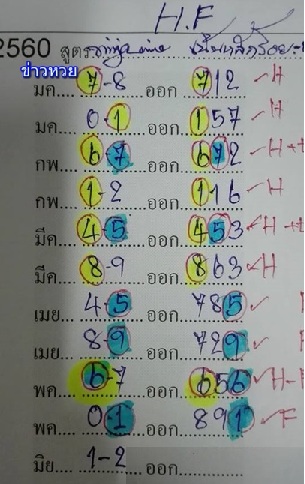 H.F
2560 สูตร
ข่าวหวย
มค....7-8....ออก....712 H
มค....0-1....ออก....157 H
กพ....67....ออก....672 H+
กพ....1-2....ออก....116 H
มีค....45....ออก....453 H+
มีค....8-9....ออก....863 H
เมย....4-5....ออก....785 F
เมย....8-9....ออก....729 F
พค....6-7....ออก....656 H-F
พค....01....ออก....891 F
มิย....1-2....ออก....